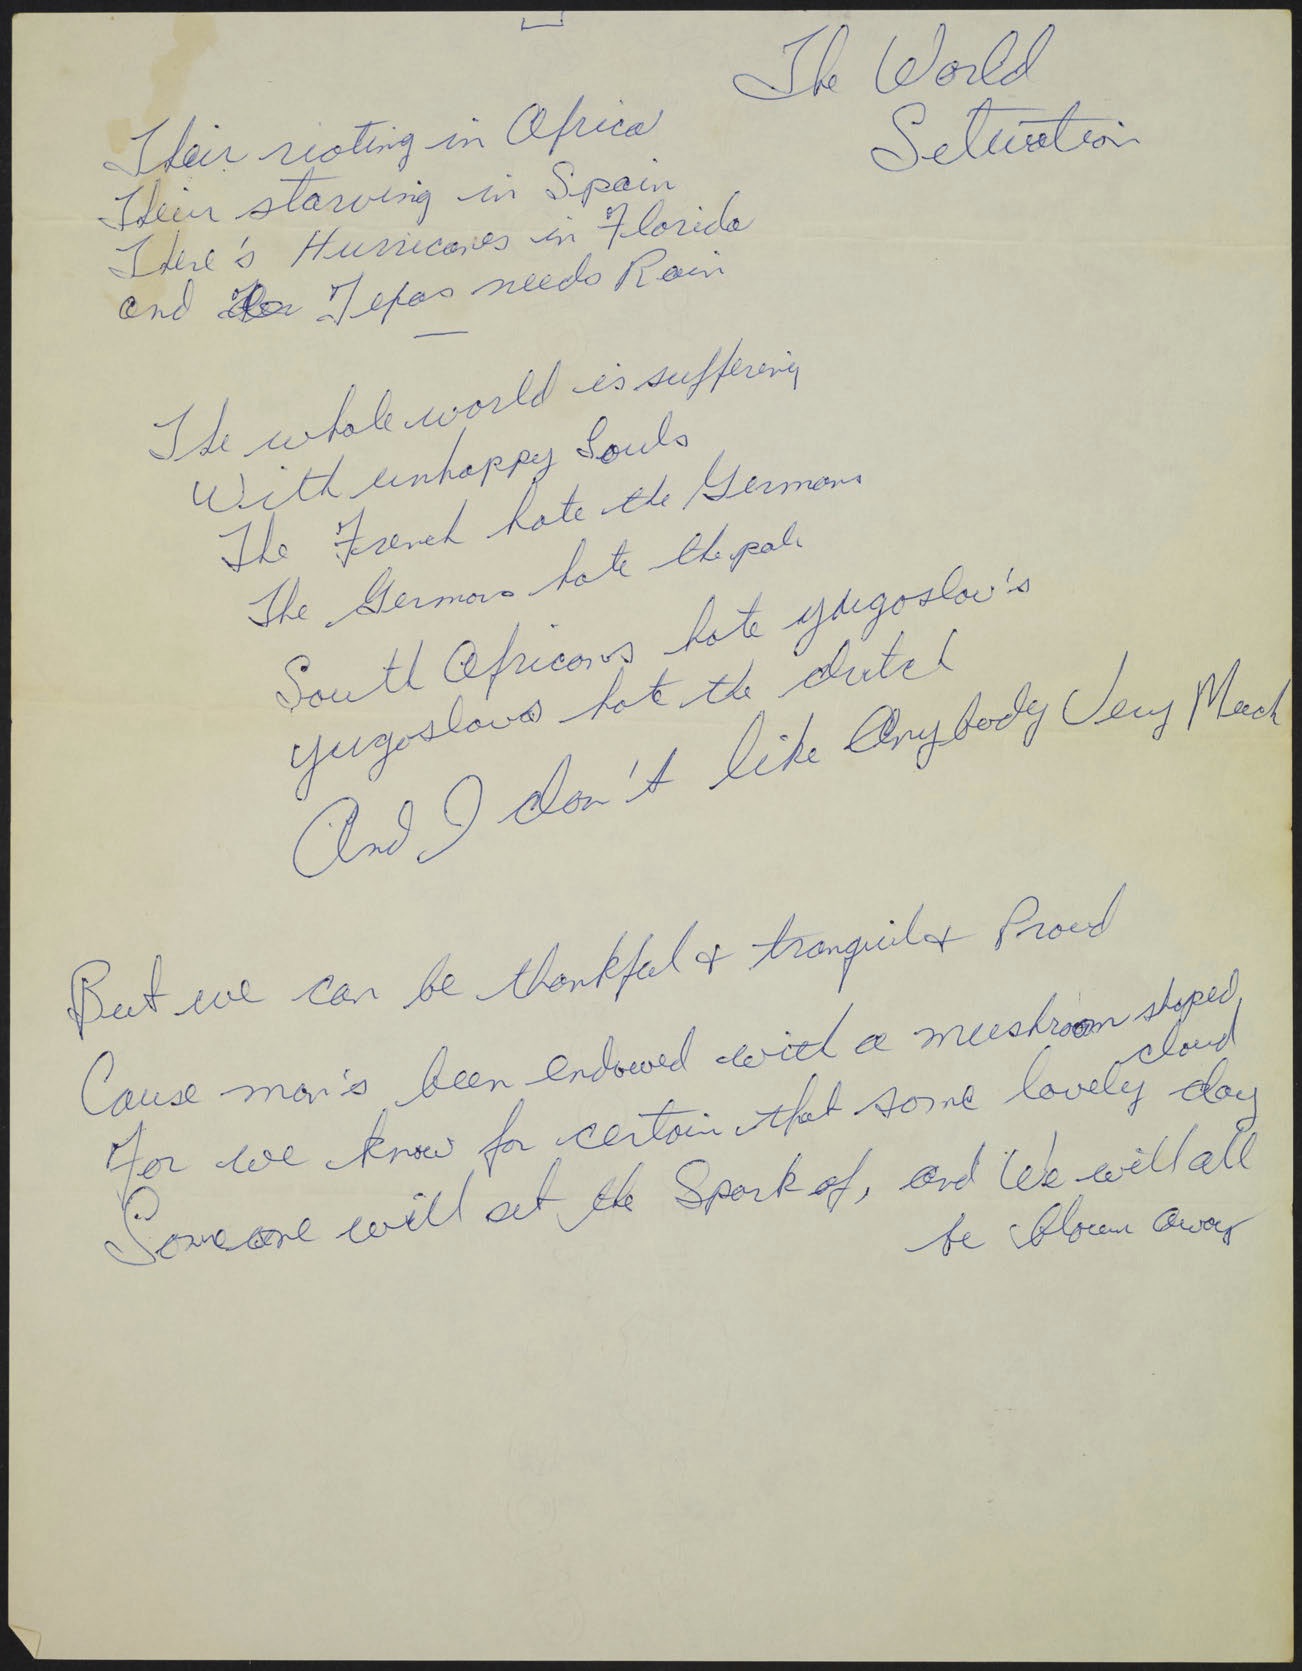 The World
Situation
Their rioting in Africa
Their starving in Spain
There's Hurricanes in Florida
and Texas needs Rain
The whole world is suffering
With unhappy Souls
The French hate the Germans
The Germans hate the pole
South Africans hate yugoslav's
yugoslavs hate the dutch
And I don't like Anybody Very Much
But we can be thankful & tranquil & Proud
Cause man's been endowed with a mushroom shaped
cloud
For we know for certain that some lovely day
Someone will set the Spark of, and We will all
be blown away